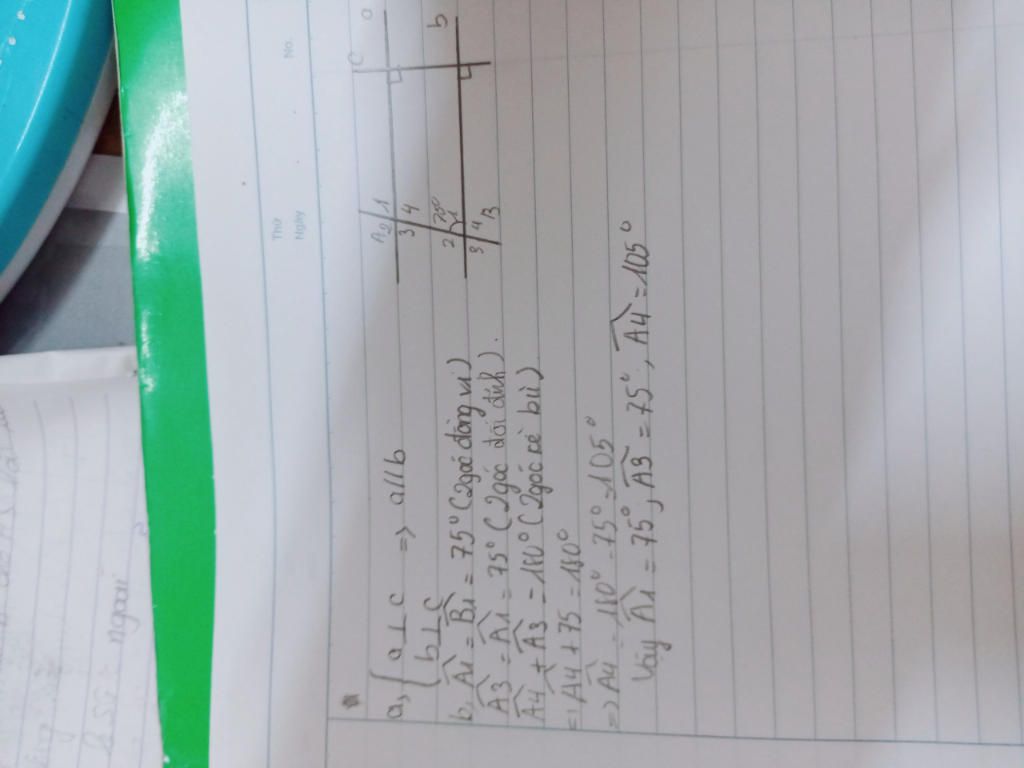 Thứ
Ngày
No.
a, { a ⊥ c
b ⊥ c => a//b
b, Â1 = B̂1 = 75° (2 góc đồng vị)
Â3 = Â1 = 75° (2 góc đối đỉnh).
Â4 + Â3 = 180° (2 góc kề bù)
=> Â4 + 75 = 180°
=> Â4 = 180° - 75° = 105°
Vậy Â1 = 75°, Â3 = 75°, Â4 = 105°
c
a
b
A 2 1
3 4
2 70° 1
3 4 B
ngoài